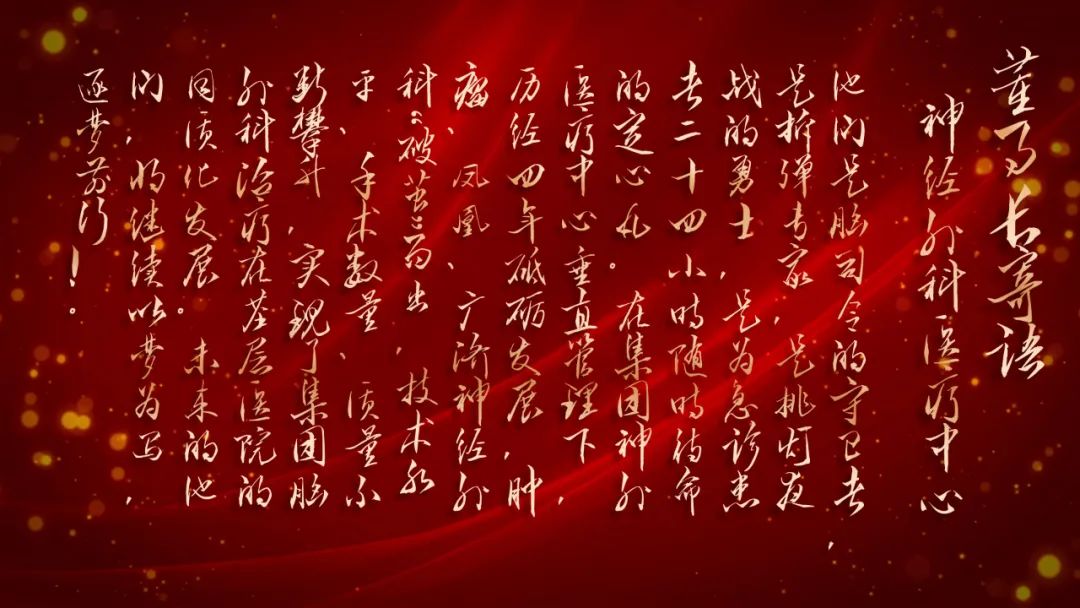 董事长寄语
神经外科医疗中心
他们是脑司令的守卫者，
是拆弹专家，是挑灯夜
战的勇士，是为急诊患
者二十四小时随时待命
的定心丸。在集团神外
医疗中心垂直管理下，
历经四年砥砺发展，肿
瘤、凤凰、广济神经外
科“破茧”而出，技术水
平、手术数量、质量不
断攀升，实现了集团脑
外科治疗在基层医院的
同质化发展。未来的他
们，将继续以梦为马，
逐梦前行！。